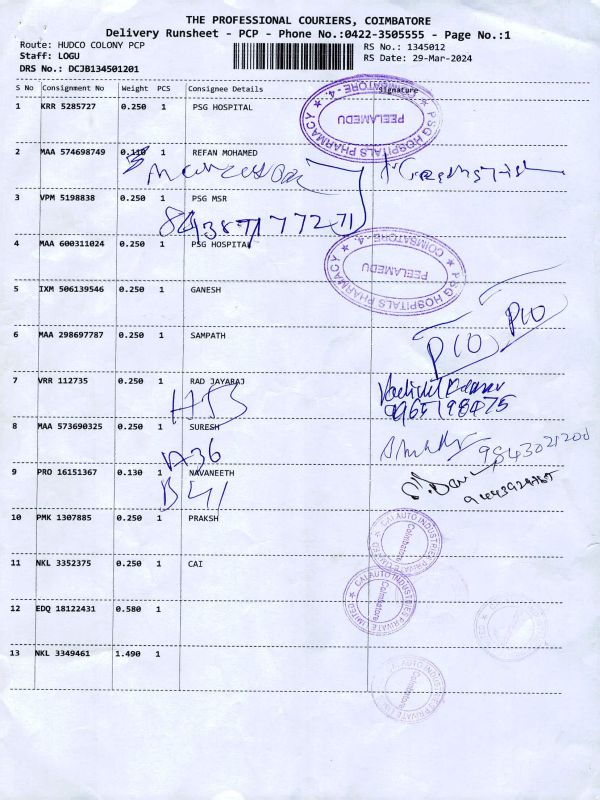 THE PROFESSIONAL COURIERS, COIMBATORE
Delivery Runsheet - PCP - Phone No.:0422-3505555 - Page No.:1
Route: HUDCO COLONY PCP
RS No.: 1345012
Staff: LOGU
RS Date: 29-Mar-2024
DRS No.: DCJB134501201
S No Consignment No Weight PCS Consignee Details Signature
1 KRR 5285727 0.250 1 PSG HOSPITAL
PSG HOSPITALS PHARMACY
PEELAMEDU
2 MAA 574698749 0.110 1 REFAN MOHAMED
3 VPM 5198838 0.250 1 PSG MSR
4 MAA 600311024 0.250 1 PSG HOSPITAL
PSG HOSPITALS PHARMACY
PEELAMEDU
COIMBATORE - 4.
5 IXM 506139546 0.250 1 GANESH
6 MAA 298697787 0.250 1 SAMPATH
P10 P10
7 VRR 112735 0.250 1 RAD JAYARAJ
H53
8 MAA 573690325 0.250 1 SURESH
9843021200
A36
9 PRO 16151367 0.130 1 NAVANEETH
B41
10 PMK 1307885 0.250 1 PRAKSH
CAI AUTO INDUSTRIES PRIVATE LIMITED
Coimbatore
11 NKL 3352375 0.250 1 CAI
CAI AUTO INDUSTRIES PRIVATE LIMITED
Coimbatore
12 EDQ 18122431 0.580 1
13 NKL 3349461 1.490 1
CAI AUTO INDUSTRIES PRIVATE LIMITED
Coimbatore